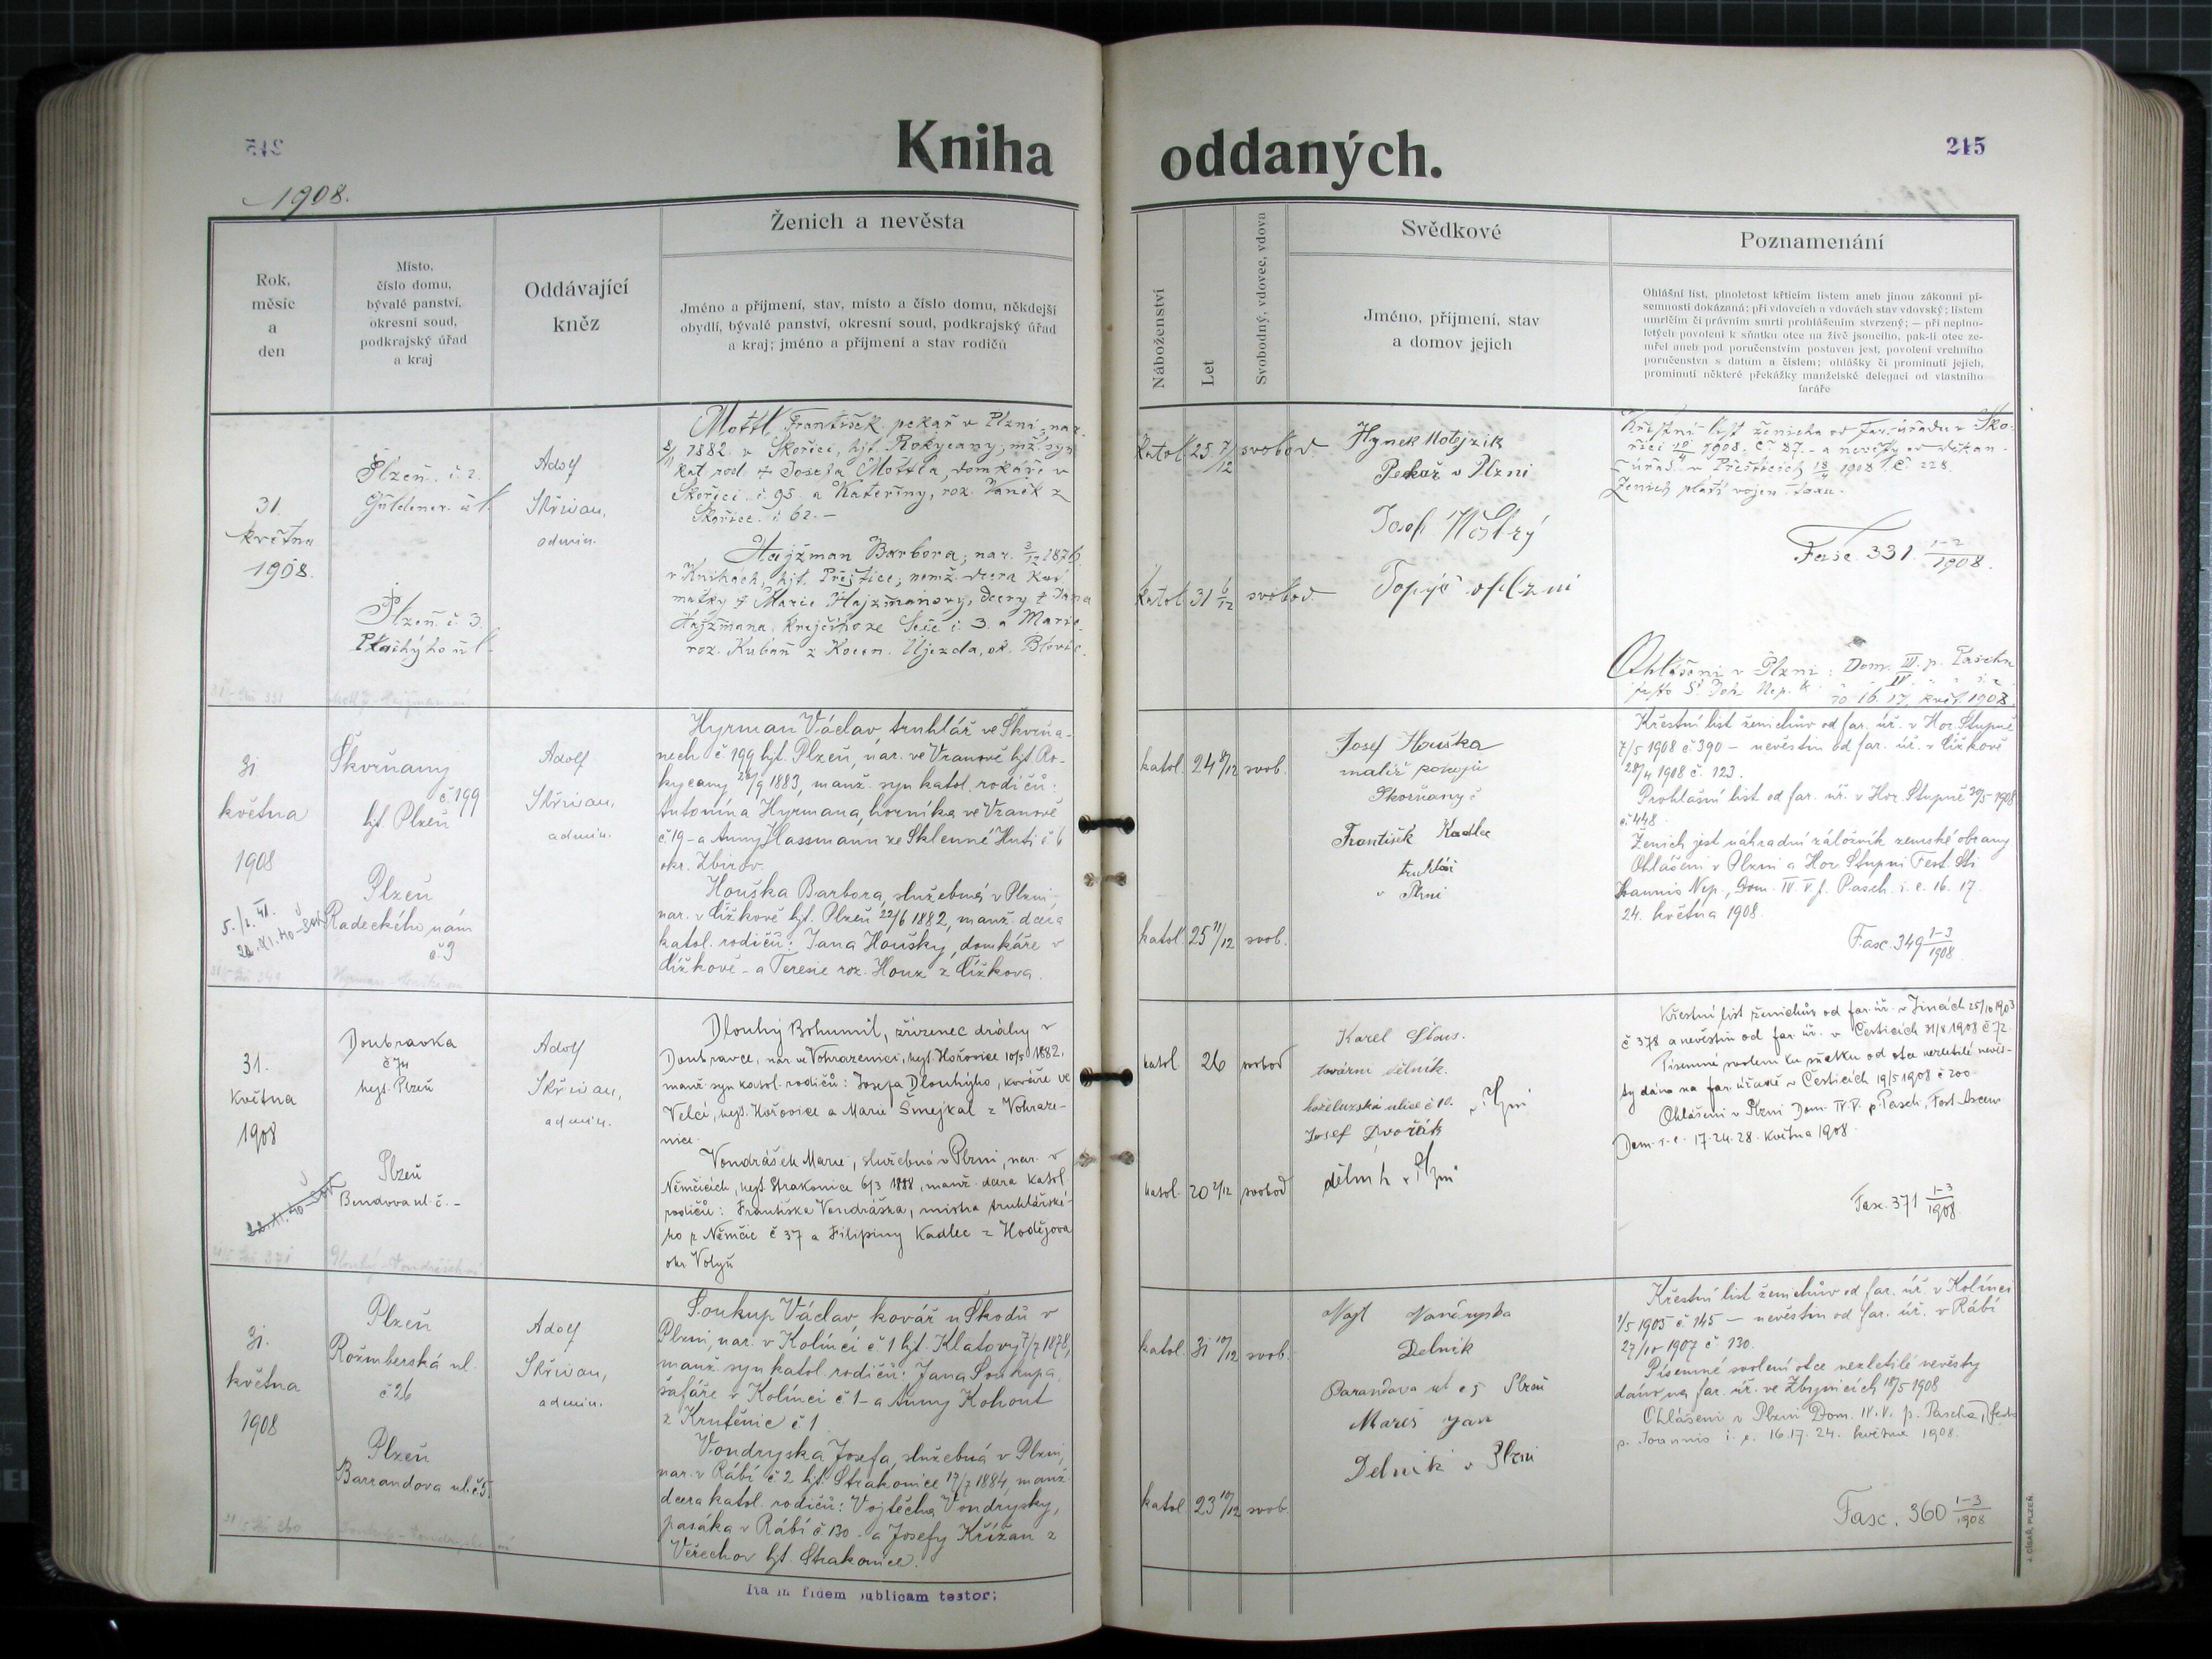 Kniha oddaných.
245
1908.
Rok,
měsíc
a
den
Místo,
číslo domu,
bývalé panství,
okresní soud,
podkrajský úřad
a kraj
Oddávající
kněz
Ženich a nevěsta
Jméno a příjmení, stav, místo a číslo domu, někdejší
obydlí, bývalé panství, okresní soud, podkrajský úřad
a kraj; jméno a příjmení a stav rodičů
Náboženství
Let
Svobodný, vdovec, vdova
Svědkové
Jméno, příjmení, stav
a domov jejich
Poznamenání
Ohlášní list, plnoletost křticím listem aneb jinou zákonní pí-
semností dokázaná; při vdovcích a vdovách stav vdovský; listem
umrlčím či právním smrtí prohlášením stvrzený; — při neplno-
letých povolení k sňatku otce na živě jsoucího, pak-li otec ze-
mřel aneb pod poručenstvím postaven jest, povolení vrchního
poručenstva s datum a číslem; ohlášky či prominutí jejich,
prominutí některé překážky manželské delegací od vlastního
faráře
31.
května
1908.
Plzeň. č. 2.
Plzeň. č. 3.
Adolf
Skřivan,
admin.
Mottl František pekař v Plzni, nar.
1882. v Skořici, hjt. Rokycany; mž. syn
kat. rod. † Josefa Mottla, domkáře v
Skořici. č. 95. a Kateřiny, roz. Vaněk z
Skořice. č 62.—
Hajžman Barbora; nar. 3/12 1876
hjt. Přeštice; nemž. dcera kat.
matky † Marie Hajžmanovy, dcery † Jana
Hajžmana, krejčího ze č. 3. a Marie
roz. Kubáň z Újezda, ok. Blovic.
katol 25 7/12 svobod
katol 31 6/12 svobod
Hynek
Pekař v Plzni
Josef
Topič v Plzni
Křestní list ženicha od far. úřadu v Sko-
řici 1908. č. 87. - a nevěsty od děkan.
úřad. v Přešticích 18/4 1908 č. 228.
Ženich platí vojen. taxu.
Fasc. 331. 1-2/1908.
Ohlášeni v Plzni: Dom. III. p. Pascha
16. 17. květ. 1908.
31
května
1908
Škvrňany
č. 199
hjt. Plzeň
Plzeň
Radeckého nám
č. 3
Adolf
Skřivan,
admin.
Hyrman Václav, truhlář ve Škvrňa-
nech č. 199 hjt. Plzeň, nar. ve Vranově hjt. Ro-
kycany 28/9 1883, manž. syn katol. rodičů:
Antonína Hyrmana, horníka ve Vranově
č. 19 - a Anny Hassmann ze Sklenné Huti č 6
okr. Zbirov.
Houška Barbora, služebná v Plzni,
nar. v Čížkově hjt. Plzeň 22/6 1882, manž. dcera
katol. rodičů: Jana Houšky, domkáře v
Čížkově - a Terezie roz. Houx z Čížkova.
katol. 24 8/12 svob.
katol. 25 11/12 svob.
Josef Houška
malíř pokojů
Skvrňany č
František Kadlec
truhlář
v Plzni
Křestní list ženichův od far. úř. v Hor. Stupně
7/5 1908 č 390 — nevěstin od far. úř. v Čížkově
28/4 1908 č. 123.
Prohlášní list od far. úř. v Hor. Stupně 30/5 1908
č. 448.
Ženich jest náhradní záložník zemské obrany
Ohlášeni v Plzni a Hor. Stupni Fest. Sti
Joannis Nep., Dom. IV. V. p. Pasch. i. e. 16. 17.
24. května 1908.
Fasc. 349 1-3/1908
31.
května
1908
Doubravka
č 74
hejt. Plzeň
Plzeň
Adolf
Skřivan,
admin.
Dlouhý Bohumil, zřízenec dráhy v
Doubravce, nar. ve Vohrazenici, hejt. Hořovice 10/5 1882.
manž. syn katol. rodičů: Josefa Dlouhýho, kováře ve
Velcí, hejt. Hořovice a Marie Šmejkal z Vohraze-
nice.
Vondrášek Marie, služebná v Plzni, nar. v
Němčicích, hejt. Strakonice 6/3 1888, manž. dcera katol.
rodičů: Františka Vondráška, mistra truhlářské-
ho z Němčic č 37 a Filipiny Kadlec z Hodějova
okr. Volyň
katol 26 svobod
katol. 20 2/12 svobod
Karel
tovární dělník.
ulice č 10. v Plzni
Josef Dvořák
dělník v Plzni
Křestní list ženichův od far. úř. v Jincích 25/10 1903
č 378 a nevěstin od far. úř. v Česticích 1908 č 72.
Písemné svolení ku sňatku od otce nezletilé nevěs-
ty dáno na far. úřadě v Česticích 19/5 1908 č 200
Ohlášeni v Plzni Dom. IV. V. p. Pasch, Fest. Ascens
Dom. i. e. 17. 24. 28. května 1908.
Fasc. 371 1-3/1908
31.
května
1908
Plzeň
Rožmberská ul.
č 26
Plzeň
Barrandova ul. č 5.
Adolf
Skřivan,
admin.
Soukup Václav, kovář u Škodů v
Plzni, nar. v Kolínci č 1 hjt. Klatovy 7/7 1878,
manž. syn katol. rodičů: Jana Soukupa,
šafáře v Kolínci č 1 - a Anny Kohout
z Krutěnic č 1.
Vondryska Josefa, služebná v Plzni,
nar. v Rábí č 2 hjt. Strakonice 17/7 1884, manž.
dcera katol. rodičů: Vojtěcha Vondrysky,
pasáka v Rábí č. 130 - a Josefy Křížan z
Veřechov hjt. Strakonice.
katol. 31 10/12 svob.
katol 23 10/12 svob.
Vojt
Delnik
Barandova ul č 5 Plzeň
Mareš Jan
Delnik v Plzni
Křestní list ženichův od far. úř. v Kolínci
1/5 1905 č 145 — nevěstin od far. úř. v Rábí
27/10 1907 č 130.
Písemné svolení otce nezletilé nevěsty
dáno na far. úř. ve Zbynicích 18/5 1908
Ohlášeni v Plzni Dom. IV. V. p. Pascha, festo
p. Joannis i. e. 16. 17. 24. května 1908.
Fasc. 360 1-3/1908
Ita in fidem publicam testor:
J. CÍSAŘ, PLZEŇ.